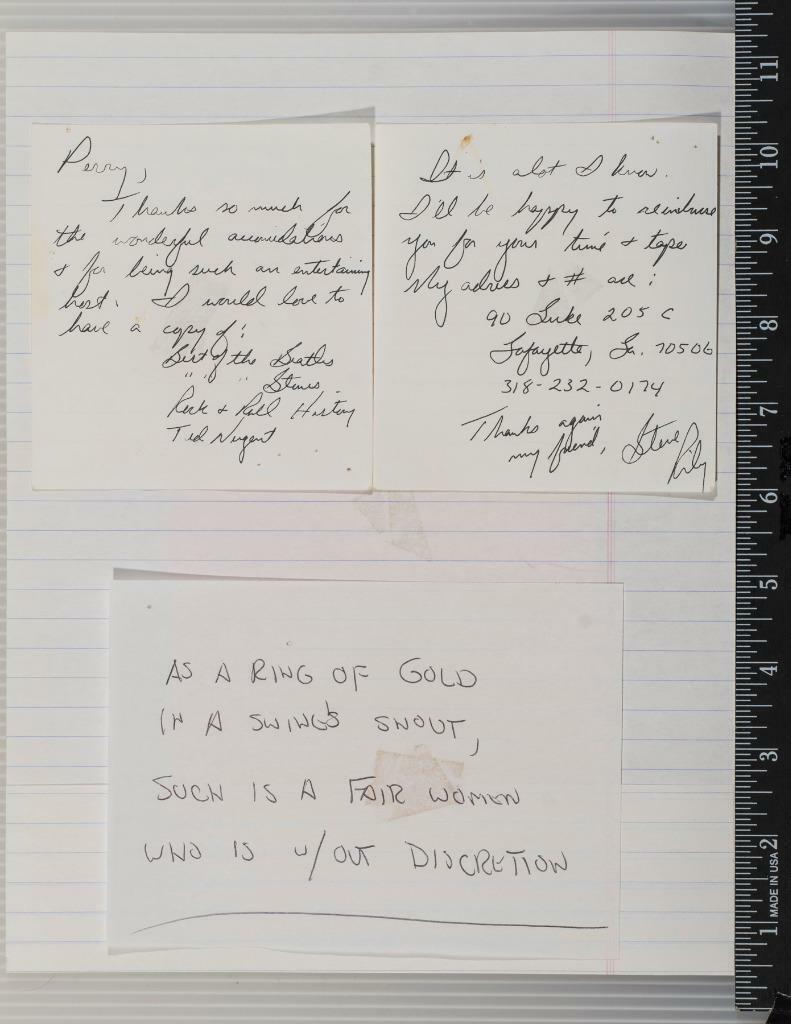 Perry,
Thanks so much for
the wonderful accomidations
& for being such an entertaining
host. I would love to
have a copy of:
Best of the Beatles
" " " Stones
Rock & Roll History
Ted Nugent
It is alot I know.
I'll be happy to reimburse
you for your time & tape
My adress & # are:
90 Luke 205 C
Lafayette, La. 70506
318-232-0174
Thanks again
my friend,
Steve
AS A RING OF GOLD
IN A SWING'S SNOUT,
SUCH IS A FAIR WOMEN
WHO IS W/OUT DISCRETION
11
10
9
8
7
6
5
4
3
2
1
MADE IN USA